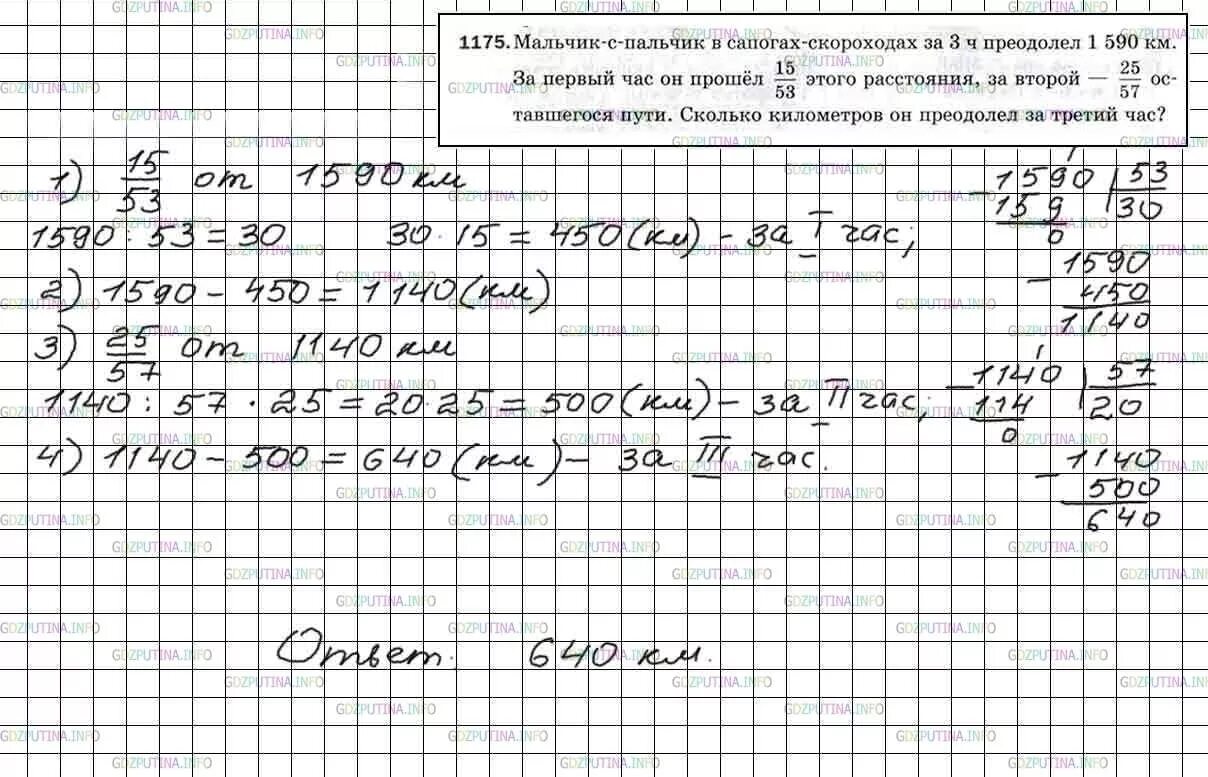 1175. Мальчик-с-пальчик в сапогах-скороходах за 3 ч преодолел 1 590 км.
За первый час он прошёл 15/53 этого расстояния, за второй — 25/57 ос-
тавшегося пути. Сколько километров он преодолел за третий час?
1) 15/53 от 1590 км
1590 : 53 = 30 30 · 15 = 450 (км) - за I час;
2) 1590 - 450 = 1140 (км)
3) 25/57 от 1140 км
1140 : 57 · 25 = 20 · 25 = 500 (км) - за II час;
4) 1140 - 500 = 640 (км) - за III час.
1590 | 53
159 | 30
0
- 1590
450
1140
- 1140 | 57
114 | 20
0
- 1140
500
640
Ответ: 640 км.
GDZPUTINA.INFO